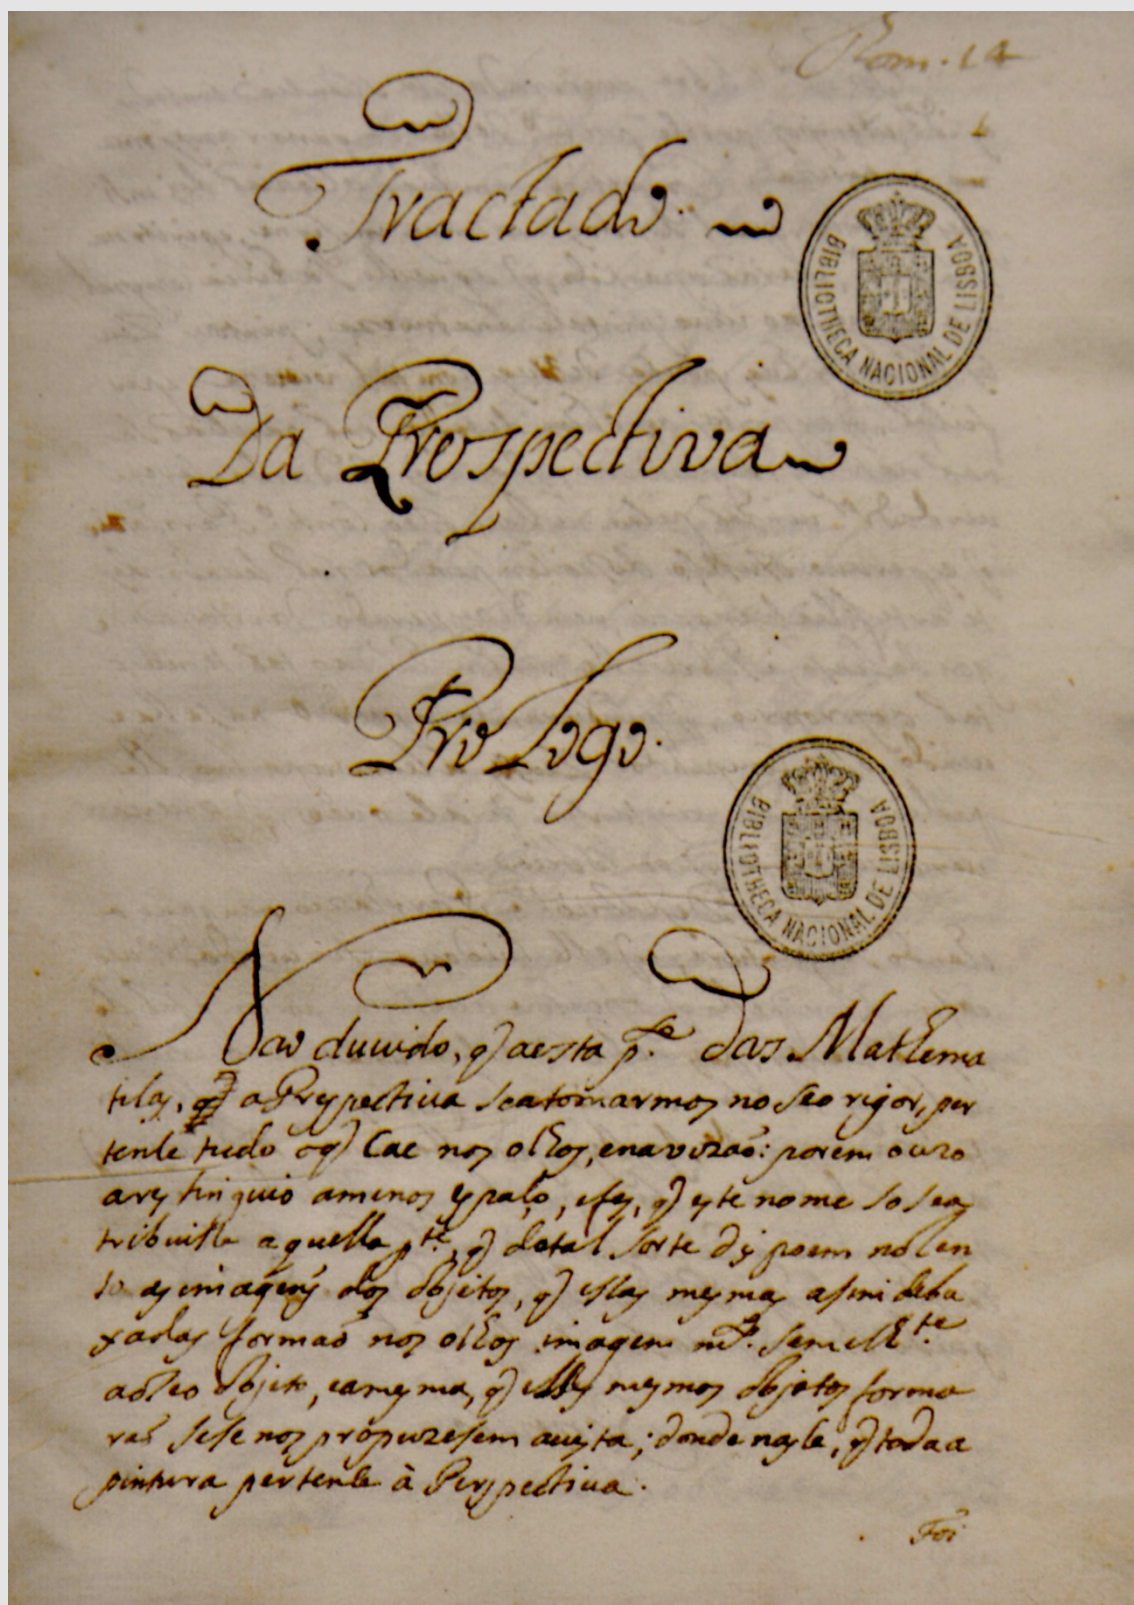 Rom. 14
1
Tractado.
BIBLIOTHECA NACIONAL DE LISBOA
Da Prospectiva
Prologo.
BIBLIOTHECA NACIONAL DE LISBOA
Nao duuido, q̃ a esta p.te das Mathema
ticas, a Prespectiua se a tomarmos no seo rigor, per
tence tudo o q̃ cae nos olhos, e na vizaõ: porem o uzo
a restinguio a menos espaço, e fes, q̃ este nome so se a
tribuisse aquella p.te, q̃ de tal sorte dispoem no len
so as imagẽns dos objetos, q̃ essas mesmas assim deba
xadas formaõ nos olhos imagem m.to semelh.te
ao seo objeto, e a mesma, q̃ esses mesmos objetos forma
raõ se se nos propuzesem a uista; donde nasce, q̃ toda a
pintura pertence à Perspectiua.
Foi